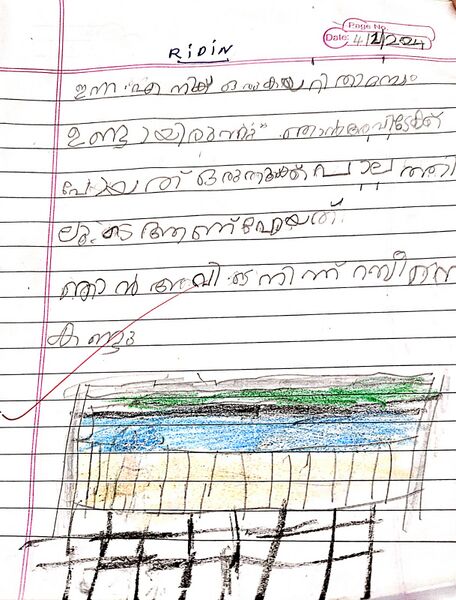 Page No.
Date: 4/1/2024
RIDIN
ഇന്ന് എനിക്ക് ഒരു
ഉണ്ടായിരുന്നു ഞാൻ അവിടേക്ക്
പോയത് ഒരു പാലത്തി
ലൂടെ ആണ് പോയത്.
ഞാൻ അവിടെ നിന്ന്
കണ്ടു